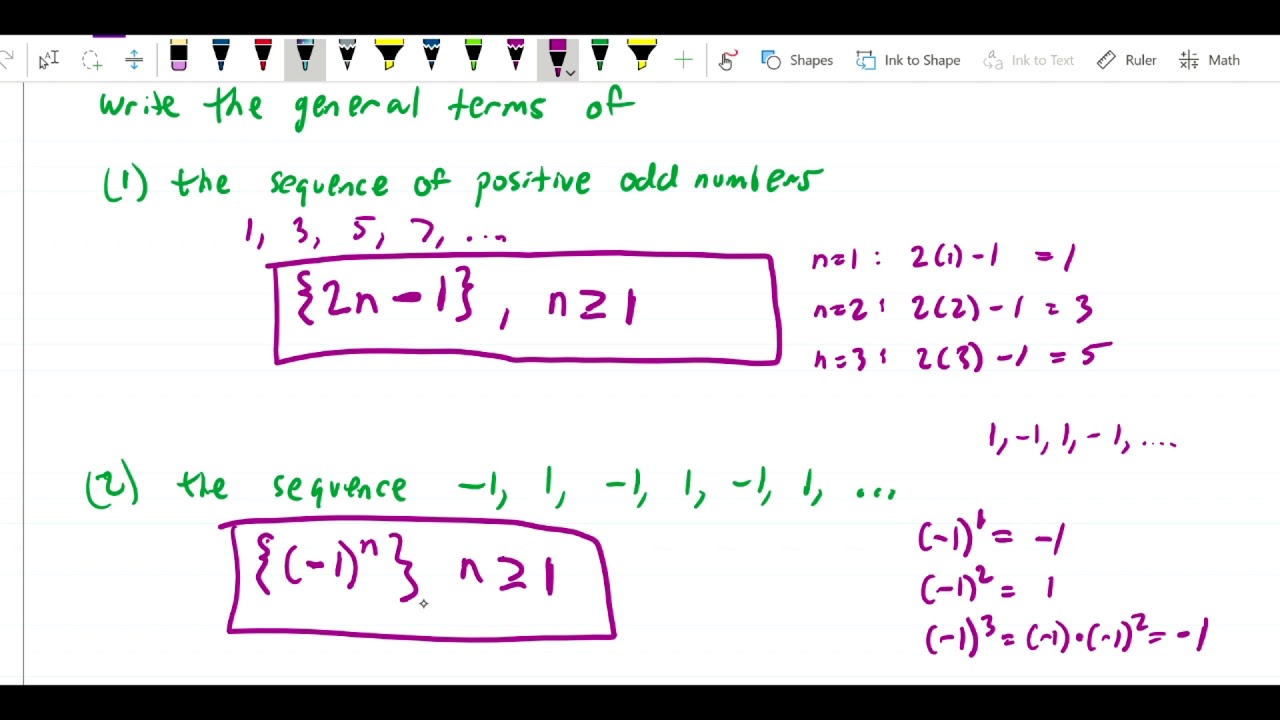 Shapes Ink to Shape Ink to Text Ruler Math
write the general terms of
(1) the sequence of positive odd numbers
1, 3, 5, 7, ...
{2n - 1}, n ≥ 1
n=1 : 2(1) - 1 = 1
n=2 : 2(2) - 1 = 3
n=3 : 2(3) - 1 = 5
1, -1, 1, -1, ....
(2) the sequence -1, 1, -1, 1, -1, 1, ...
{(-1)ⁿ} n ≥ 1
(-1)¹ = -1
(-1)² = 1
(-1)³ = (-1)·(-1)² = -1